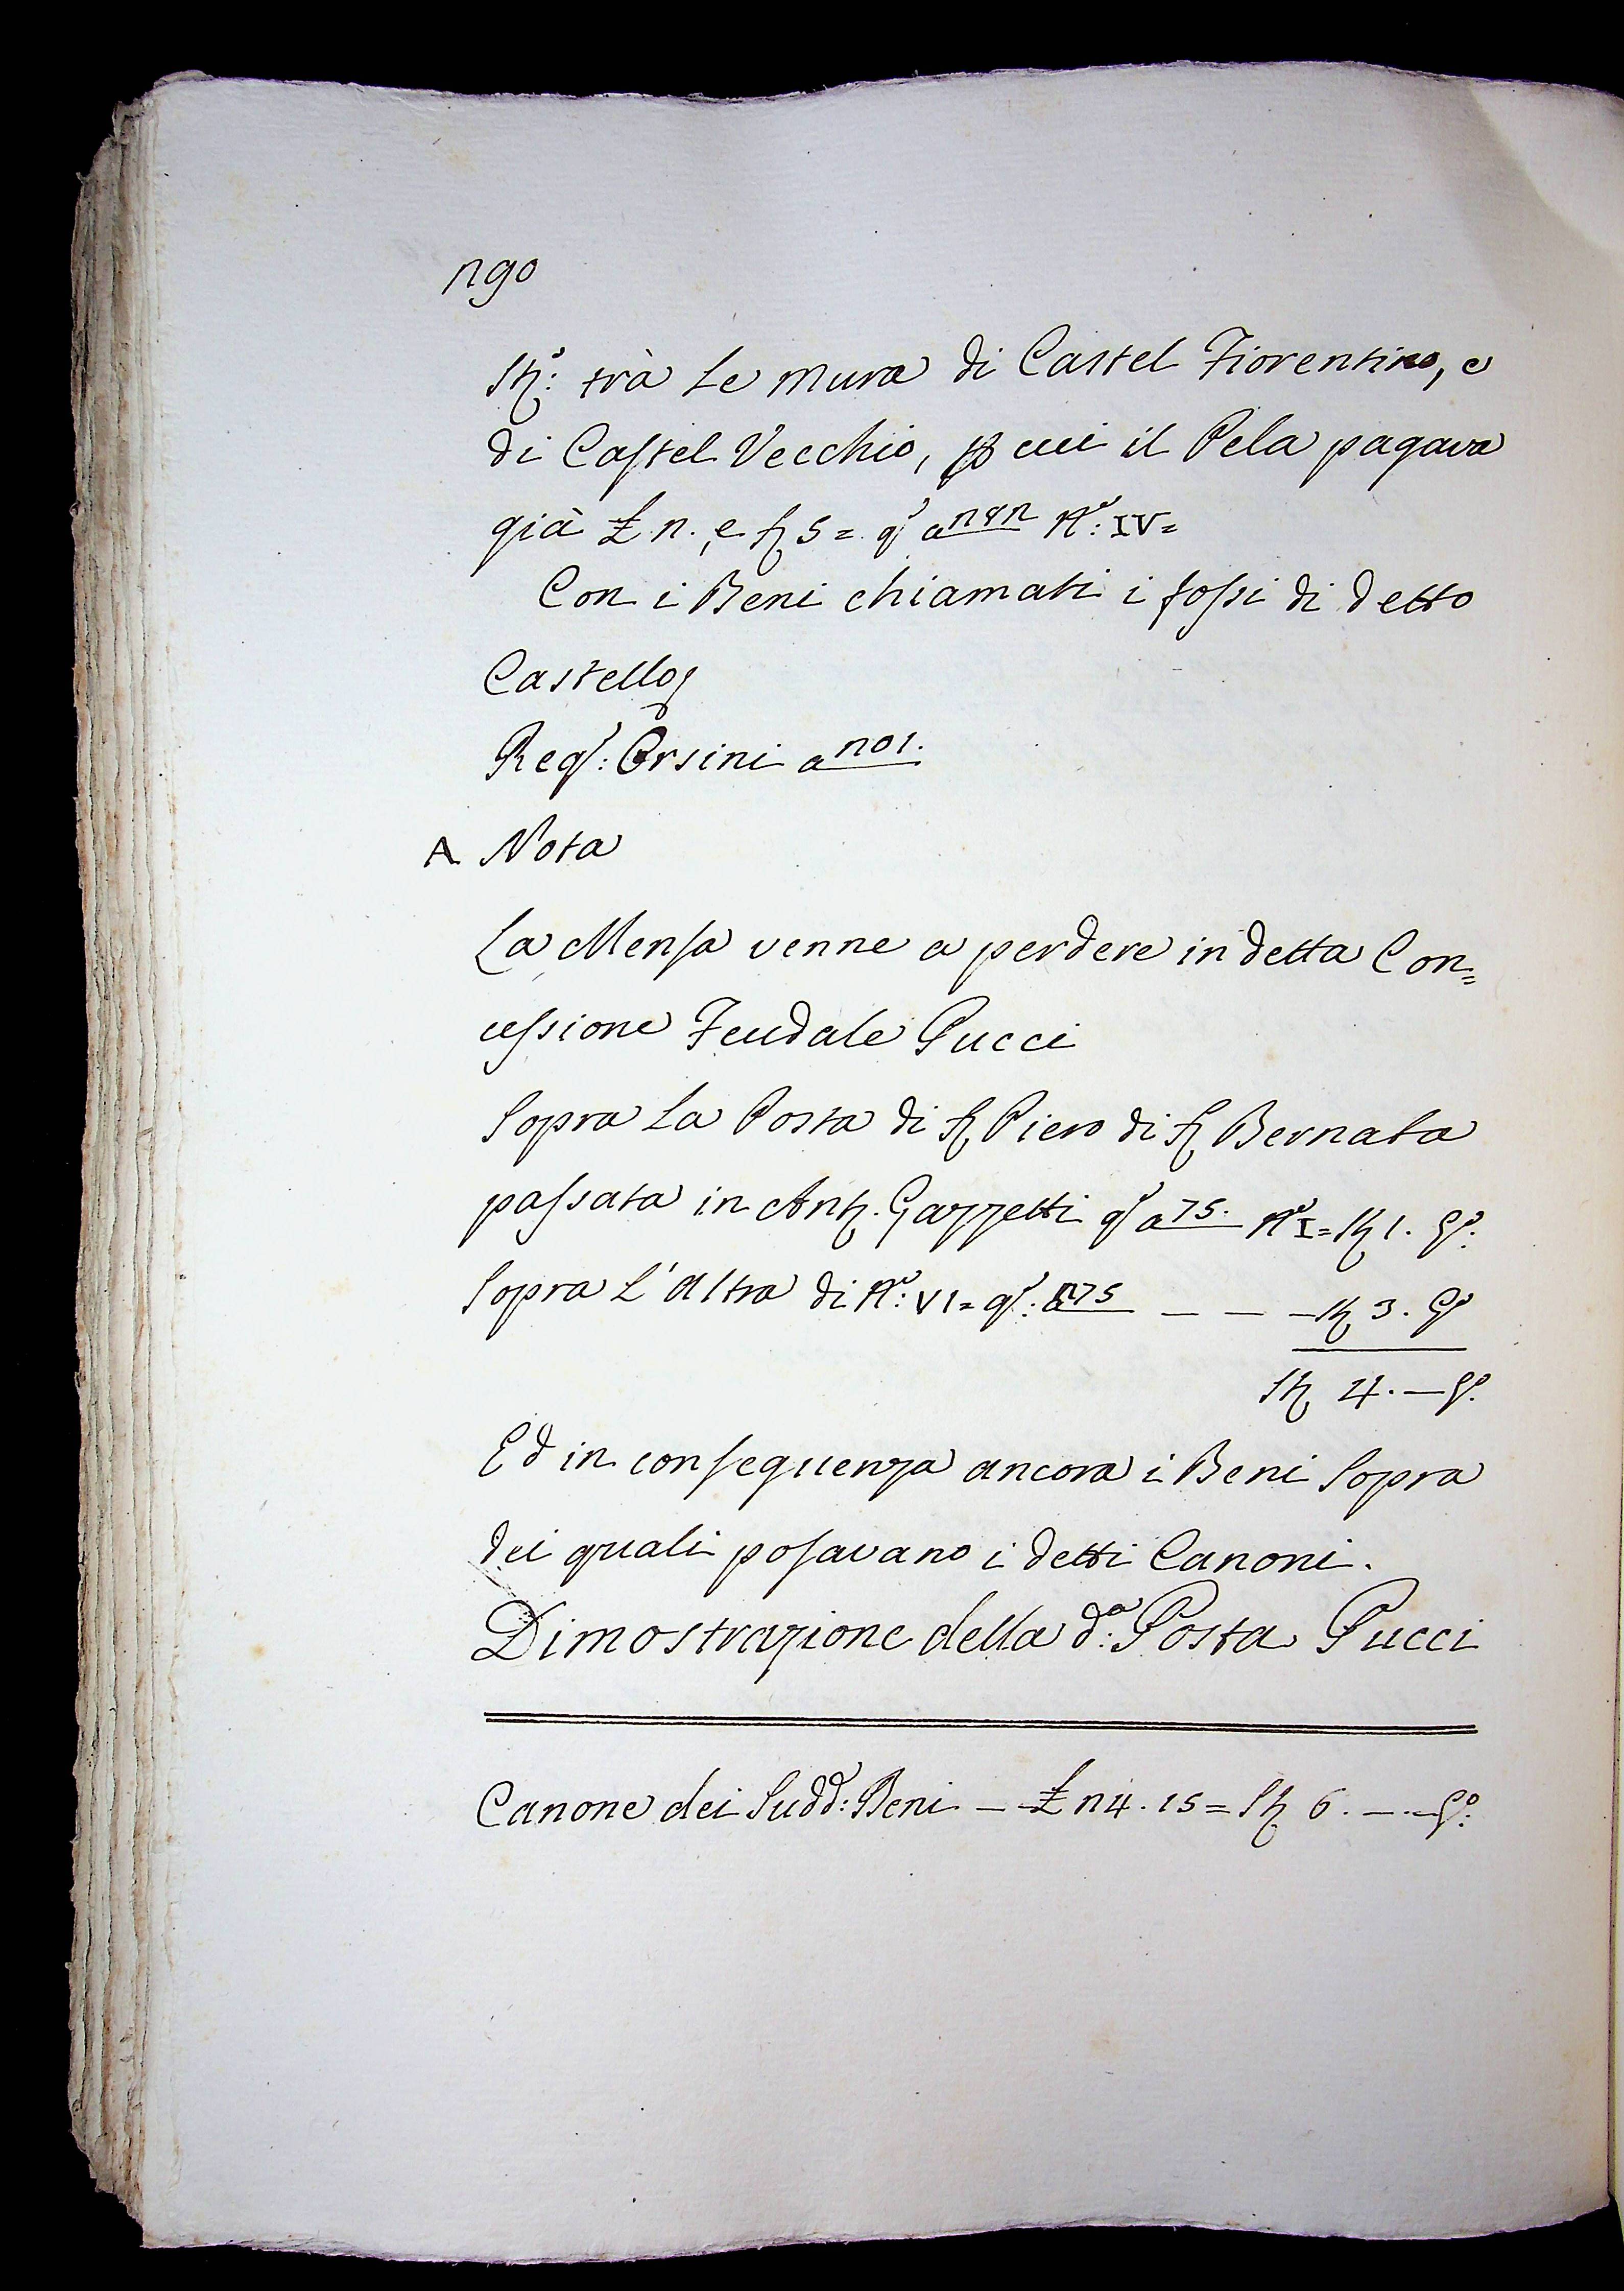 290
St.º: trà Le mura di Castel Fiorentino, e
di Castel Vecchio, p cui il Pela pagava
già £ 2., e s 5 = qº a 282 Nº: IV=
Con i Beni chiamati i fossi di detto
Castello
Regº: Orsini a 201.
A Nota
La Mensa venne a perdere in detta Con=
cessione Feudale Pucci
Sopra La Posta di S. Piero di S. Bernata
passata in Ant. Gazzetti qº a 75. Nº I= St 1. Gº:
Sopra L'altra di Nº: VI= qº: a 75 — — — St 3. Gº
St 4. — Gº.
Ed in consequenza ancora i Beni Sopra
dei quali posavano i detti Canoni.
Dimostrazione della d.ª: Posta Pucci
Canone dei Sudd.ⁱ: Beni — £ 24. 15 = St 6. —.— Gº: